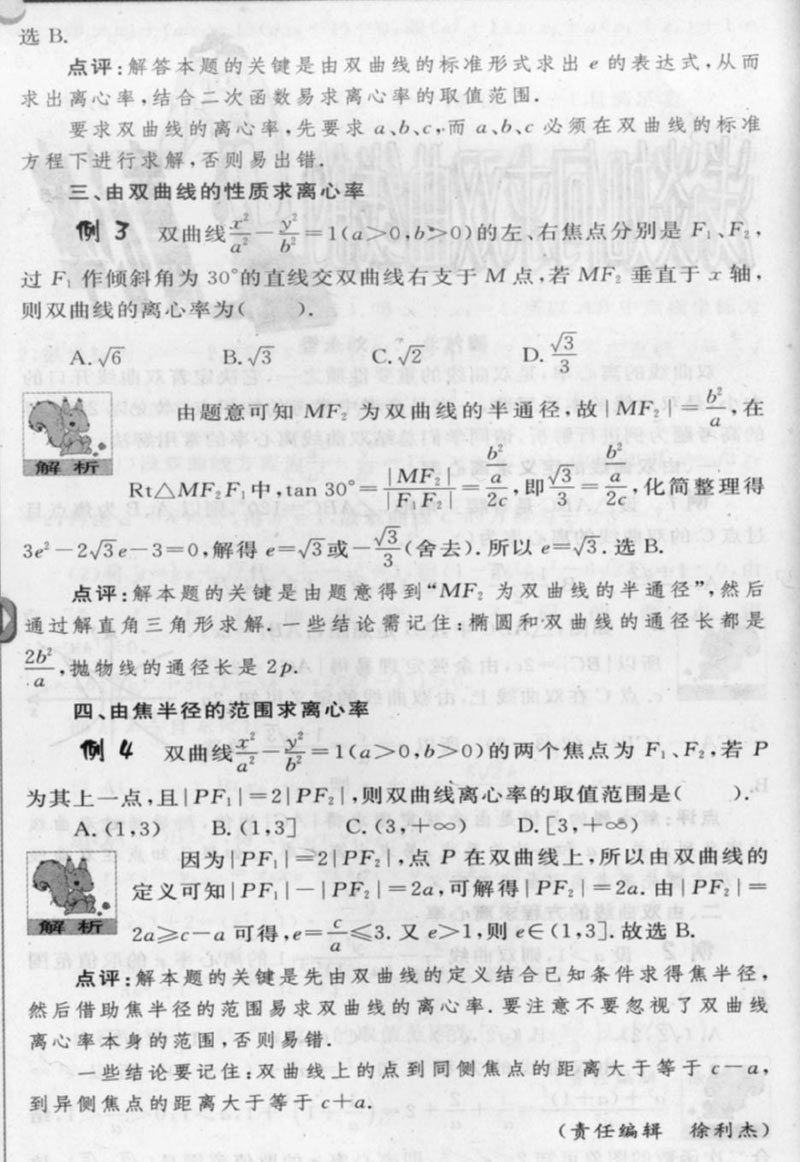 选 B.
点评:解答本题的关键是由双曲线的标准形式求出 e 的表达式,从而
求出离心率,结合二次函数易求离心率的取值范围.
要求双曲线的离心率,先要求 a、b、c,而 a、b、c 必须在双曲线的标准
方程下进行求解,否则易出错.
三、由双曲线的性质求离心率
例 3 双曲线 x²/a² - y²/b² =1(a>0,b>0)的左、右焦点分别是 F₁、F₂,
过 F₁ 作倾斜角为 30°的直线交双曲线右支于 M 点,若 MF₂ 垂直于 x 轴,
则双曲线的离心率为( ).
A.√6 B.√3 C.√2 D.√3/3
解析 由题意可知 MF₂ 为双曲线的半通径,故|MF₂|=b²/a,在
Rt△MF₂F₁中,tan 30°=|MF₂|/|F₁F₂|=(b²/a)/2c,即√3/3=(b²/a)/2c,化简整理得
3e²-2√3e-3=0,解得 e=√3或-√3/3(舍去).所以 e=√3.选 B.
点评:解本题的关键是由题意得到“MF₂ 为双曲线的半通径”,然后
通过解直角三角形求解,一些结论需记住:椭圆和双曲线的通径长都是
2b²/a,抛物线的通径长是 2p.
四、由焦半径的范围求离心率
例 4 双曲线 x²/a² - y²/b² =1(a>0,b>0)的两个焦点为 F₁、F₂,若 P
为其上一点,且|PF₁|=2|PF₂|,则双曲线离心率的取值范围是( ).
A.(1,3) B.(1,3] C.(3,+∞) D.[3,+∞)
解析 因为|PF₁|=2|PF₂|,点 P 在双曲线上,所以由双曲线的
定义可知|PF₁|-|PF₂|=2a,可解得|PF₂|=2a.由|PF₂|=
2a≥c-a 可得,e=c/a≤3.又 e>1,则 e∈(1,3].故选 B.
点评:解本题的关键是先由双曲线的定义结合已知条件求得焦半径,
然后借助焦半径的范围易求双曲线的离心率.要注意不要忽视了双曲线
离心率本身的范围,否则易错.
一些结论要记住:双曲线上的点到同侧焦点的距离大于等于 c-a,
到异侧焦点的距离大于等于 c+a.
(责任编辑 徐利杰)